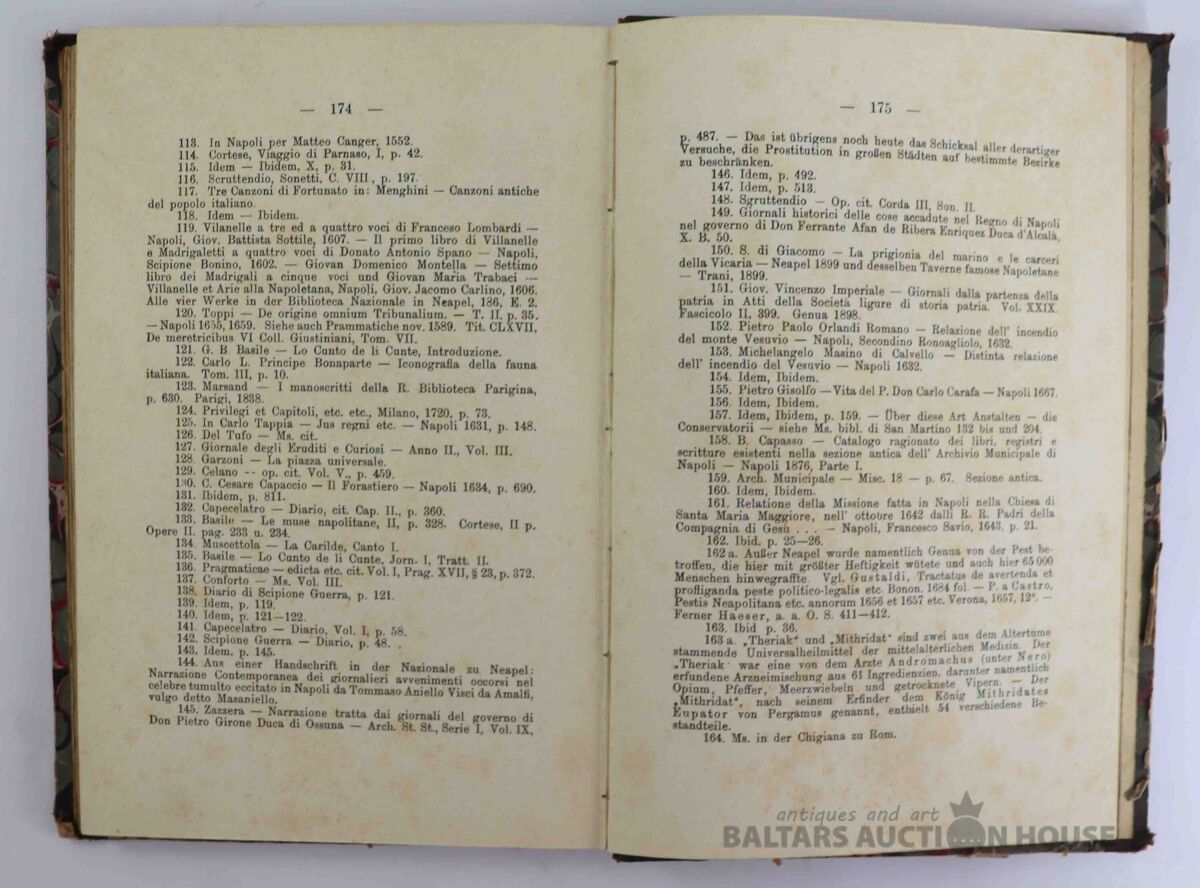 — 174 —
113. In Napoli per Matteo Canger, 1552.
114. Cortese, Viaggio di Parnaso, I, p. 42.
115. Idem — Ibidem, X, p. 31.
116. Scruttendio, Sonetti, C. VIII, p. 197.
117. Tre Canzoni di Fortunato in: Menghini — Canzoni antiche
del popolo italiano.
118. Idem — Ibidem.
119. Vilanelle a tre ed a quattro voci di Franceso Lombardi —
Napoli, Giov. Battista Sottile, 1607. — Il primo libro di Villanelle
e Madrigaletti a quattro voci di Donato Antonio Spano — Napoli,
Scipione Bonino, 1602. — Giovan Domenico Montella — Settimo
libro dei Madrigali a cinque voci und Giovan Maria Trabaci —
Villanelle et Arie alla Napoletana, Napoli, Giov. Jacomo Carlino, 1606.
Alle vier Werke in der Biblioteca Nazionale in Neapel, 186, E. 2.
120. Toppi — De origine omnium Tribunalium. — T. II. p. 35.
— Napoli 1655, 1659. Siehe auch Prammatiche nov. 1589. Tit. CLXVII,
De meretricibus VI Coll. Giustiniani, Tom. VII.
121. G. B. Basile — Lo Cunto de li Cunte, Introduzione.
122. Carlo L. Principe Bonaparte — Iconografia della fauna
italiana. Tom. III, p. 10.
123. Marsand — I manoscritti della R. Biblioteca Parigina,
p. 630. Parigi, 1838.
124. Privilegi et Capitoli, etc. etc., Milano, 1720, p. 73.
125. In Carlo Tappia — Jus regni etc. — Napoli 1631, p. 148.
126. Del Tufo — Ms. cit.
127. Giornale degli Eruditi e Curiosi — Anno II., Vol. III.
128. Garzoni — La piazza universale.
129. Celano — op. cit. Vol. V., p. 459.
130. C. Cesare Capaccio — Il Forastiero — Napoli 1634, p. 690.
131. Ibidem, p. 811.
132. Capecelatro — Diario, cit. Cap. II., p. 360.
133. Basile — Le muse napolitane, II, p. 328. Cortese, II p.
Opere II. pag. 233 u. 234.
134. Muscettola — La Carilde, Canto I.
135. Basile — Lo Cunto de li Cunte, Jorn. I, Tratt. II.
136. Pragmaticae — edicta etc. cit. Vol. I, Prag. XVII, § 23, p. 372.
137. Conforto — Ms. Vol. III.
138. Diario di Scipione Guerra, p. 121.
139. Idem, p. 119.
140. Idem, p. 121—122.
141. Capecelatro — Diario, Vol. I, p. 58.
142. Scipione Guerra — Diario, p. 48.
143. Idem, p. 145.
144. Aus einer Handschrift in der Nazionale zu Neapel:
Narrazione Contemporanea dei giornalieri avvenimenti occorsi nel
celebre tumulto eccitato in Napoli da Tommaso Aniello Visci da Amalfi,
vulgo detto Masaniello.
145. Zazzera — Narrazione tratta dai giornali del governo di
Don Pietro Girone Duca di Ossuna — Arch. St. St., Serie I, Vol. IX,
— 175 —
p. 487. — Das ist übrigens noch heute das Schicksal aller derartiger
Versuche, die Prostitution in großen Städten auf bestimmte Bezirke
zu beschränken.
146. Idem, p. 492.
147. Idem, p. 513.
148. Sgruttendio — Op. cit. Corda III, Son. II.
149. Giornali historici delle cose accadute nel Regno di Napoli
nel governo di Don Ferrante Afan de Ribera Enriquez Duca d'Alcalà,
X. B. 50.
150. S. di Giacomo — La prigionia del marino e le carceri
della Vicaria — Neapel 1899 und desselben Taverne famose Napoletane
— Trani, 1899.
151. Giov. Vincenzo Imperiale — Giornali dalla partenza della
patria in Atti della Società ligure di storia patria. Vol. XXIX.
Fascicolo II, 399. Genua 1898.
152. Pietro Paolo Orlandi Romano — Relazione dell' incendio
del monte Vesuvio — Napoli, Secondino Ronoagliolo, 1632.
153. Michelangelo Masino di Calvello — Distinta relazione
dell' incendio del Vesuvio — Napoli 1632.
154. Idem, Ibidem.
155. Pietro Gisolfo — Vita del P. Don Carlo Carafa — Napoli 1667.
156. Idem, Ibidem.
157. Idem, Ibidem, p. 159. — Über diese Art Anstalten — die
Conservatorii — siehe Ms. bibl. di San Martino 132 bis und 204.
158. B. Capasso — Catalogo ragionato dei libri, registri e
scritture esistenti nella sezione antica dell' Archivio Municipale di
Napoli — Napoli 1876, Parte I.
159. Arch. Municipale — Misc. 18 — p. 67. Sezione antica.
160. Idem, Ibidem.
161. Relatione della Missione fatta in Napoli nella Chiesa di
Santa Maria Maggiore, nell' ottobre 1642 dalli R. R. Padri della
Compagnia di Gesù . . . — Napoli, Francesco Sario, 1643, p. 21.
162. Ibid. p. 25—26.
162 a. Außer Neapel wurde namentlich Genua von der Pest be-
troffen, die hier mit größter Heftigkeit wütete und auch hier 65 000
Menschen hinwegraffte. Vgl. Gustaldi, Tractatus de avertenda et
profliganda peste politico-legalis etc. Bonon. 1684 fol. — P. a Castro,
Pestis Neapolitana etc. annorum 1656 et 1657 etc. Verona, 1657, 12°. —
Ferner Haeser, a. a. O. S. 411—412.
163. Ibid p. 36.
163 a. „Theriak“ und „Mithridat“ sind zwei aus dem Altertume
stammende Universalheilmittel der mittelalterlichen Medizin. Der
„Theriak“ war eine von dem Arzte Andromachus (unter Nero)
erfundene Arzneimischung aus 61 Ingredienzien, darunter namentlich
Opium, Pfeffer, Meerzwiebeln und getrocknete Vipern. — Der
„Mithridat“, nach seinem Erfinder dem König Mithridates
Eupator von Pergamus genannt, enthielt 54 verschiedene Be-
standteile.
164. Ms. in der Chigiana zu Rom.
antiques and art
BALTARS AUCTION HOUSE